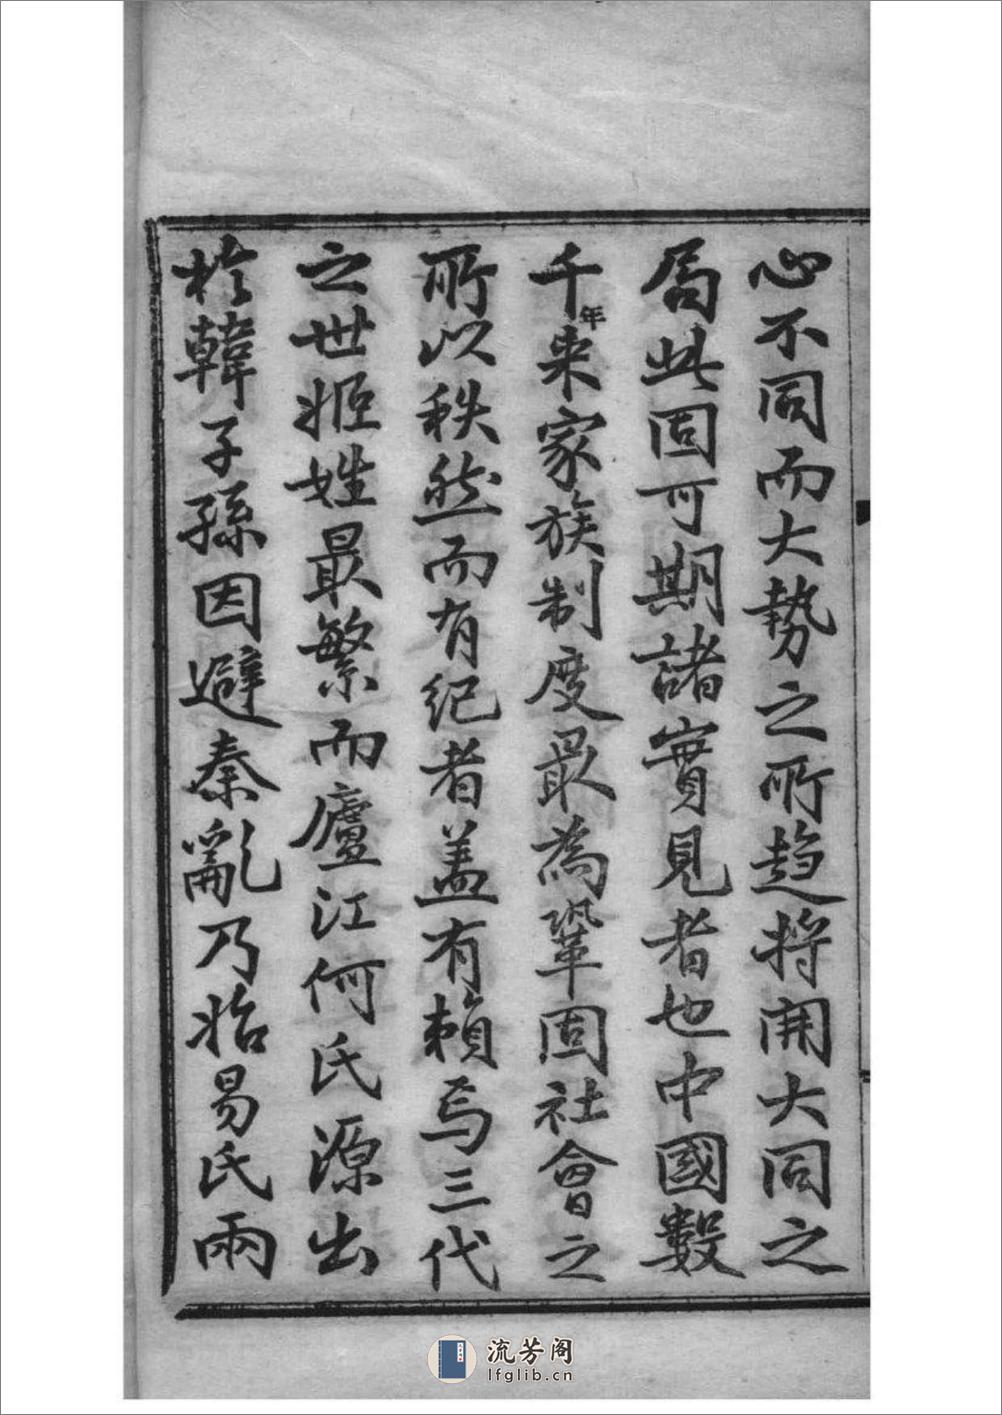 心不同而大勢之所趨將開大同之
局此固可期諸實見者也中國數
千年来家族制度最為鞏固社會之
所以秩然而有紀者盖有賴焉三代
之世姬姓最繁而廬江何氏源出
於韓子孫因避秦亂乃指易氏兩
流芳阁
lfglib.cn